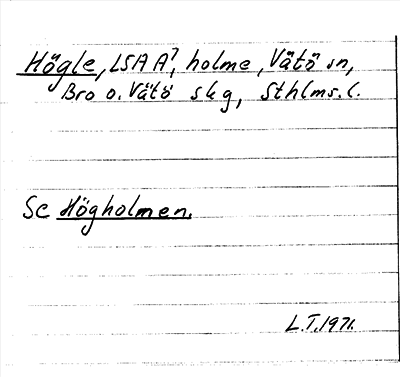 Högle, LSA A?, holme, Vätö sn,
Bro o. Vätö skg, Sthlms. l.
Se Högholmen.
L.T. 1971.